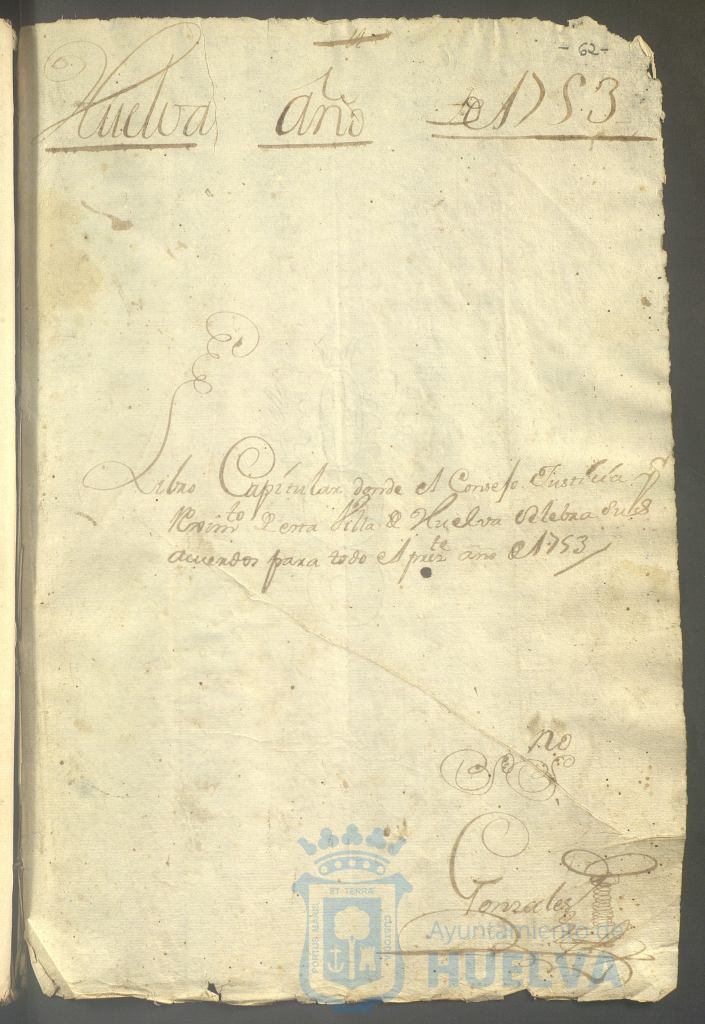 - 62 -
Huelva año de 1753
Libro Capitular donde el Consejo Justicia y
Rexim.to de esta Villa de Huelva Selebra Sus
acuerdos para todo el pres.te año de 1753
no
Gonzales
PORTUS MARIS ET TERRAE CUSTODIA
Ayuntamiento de
HUELVA